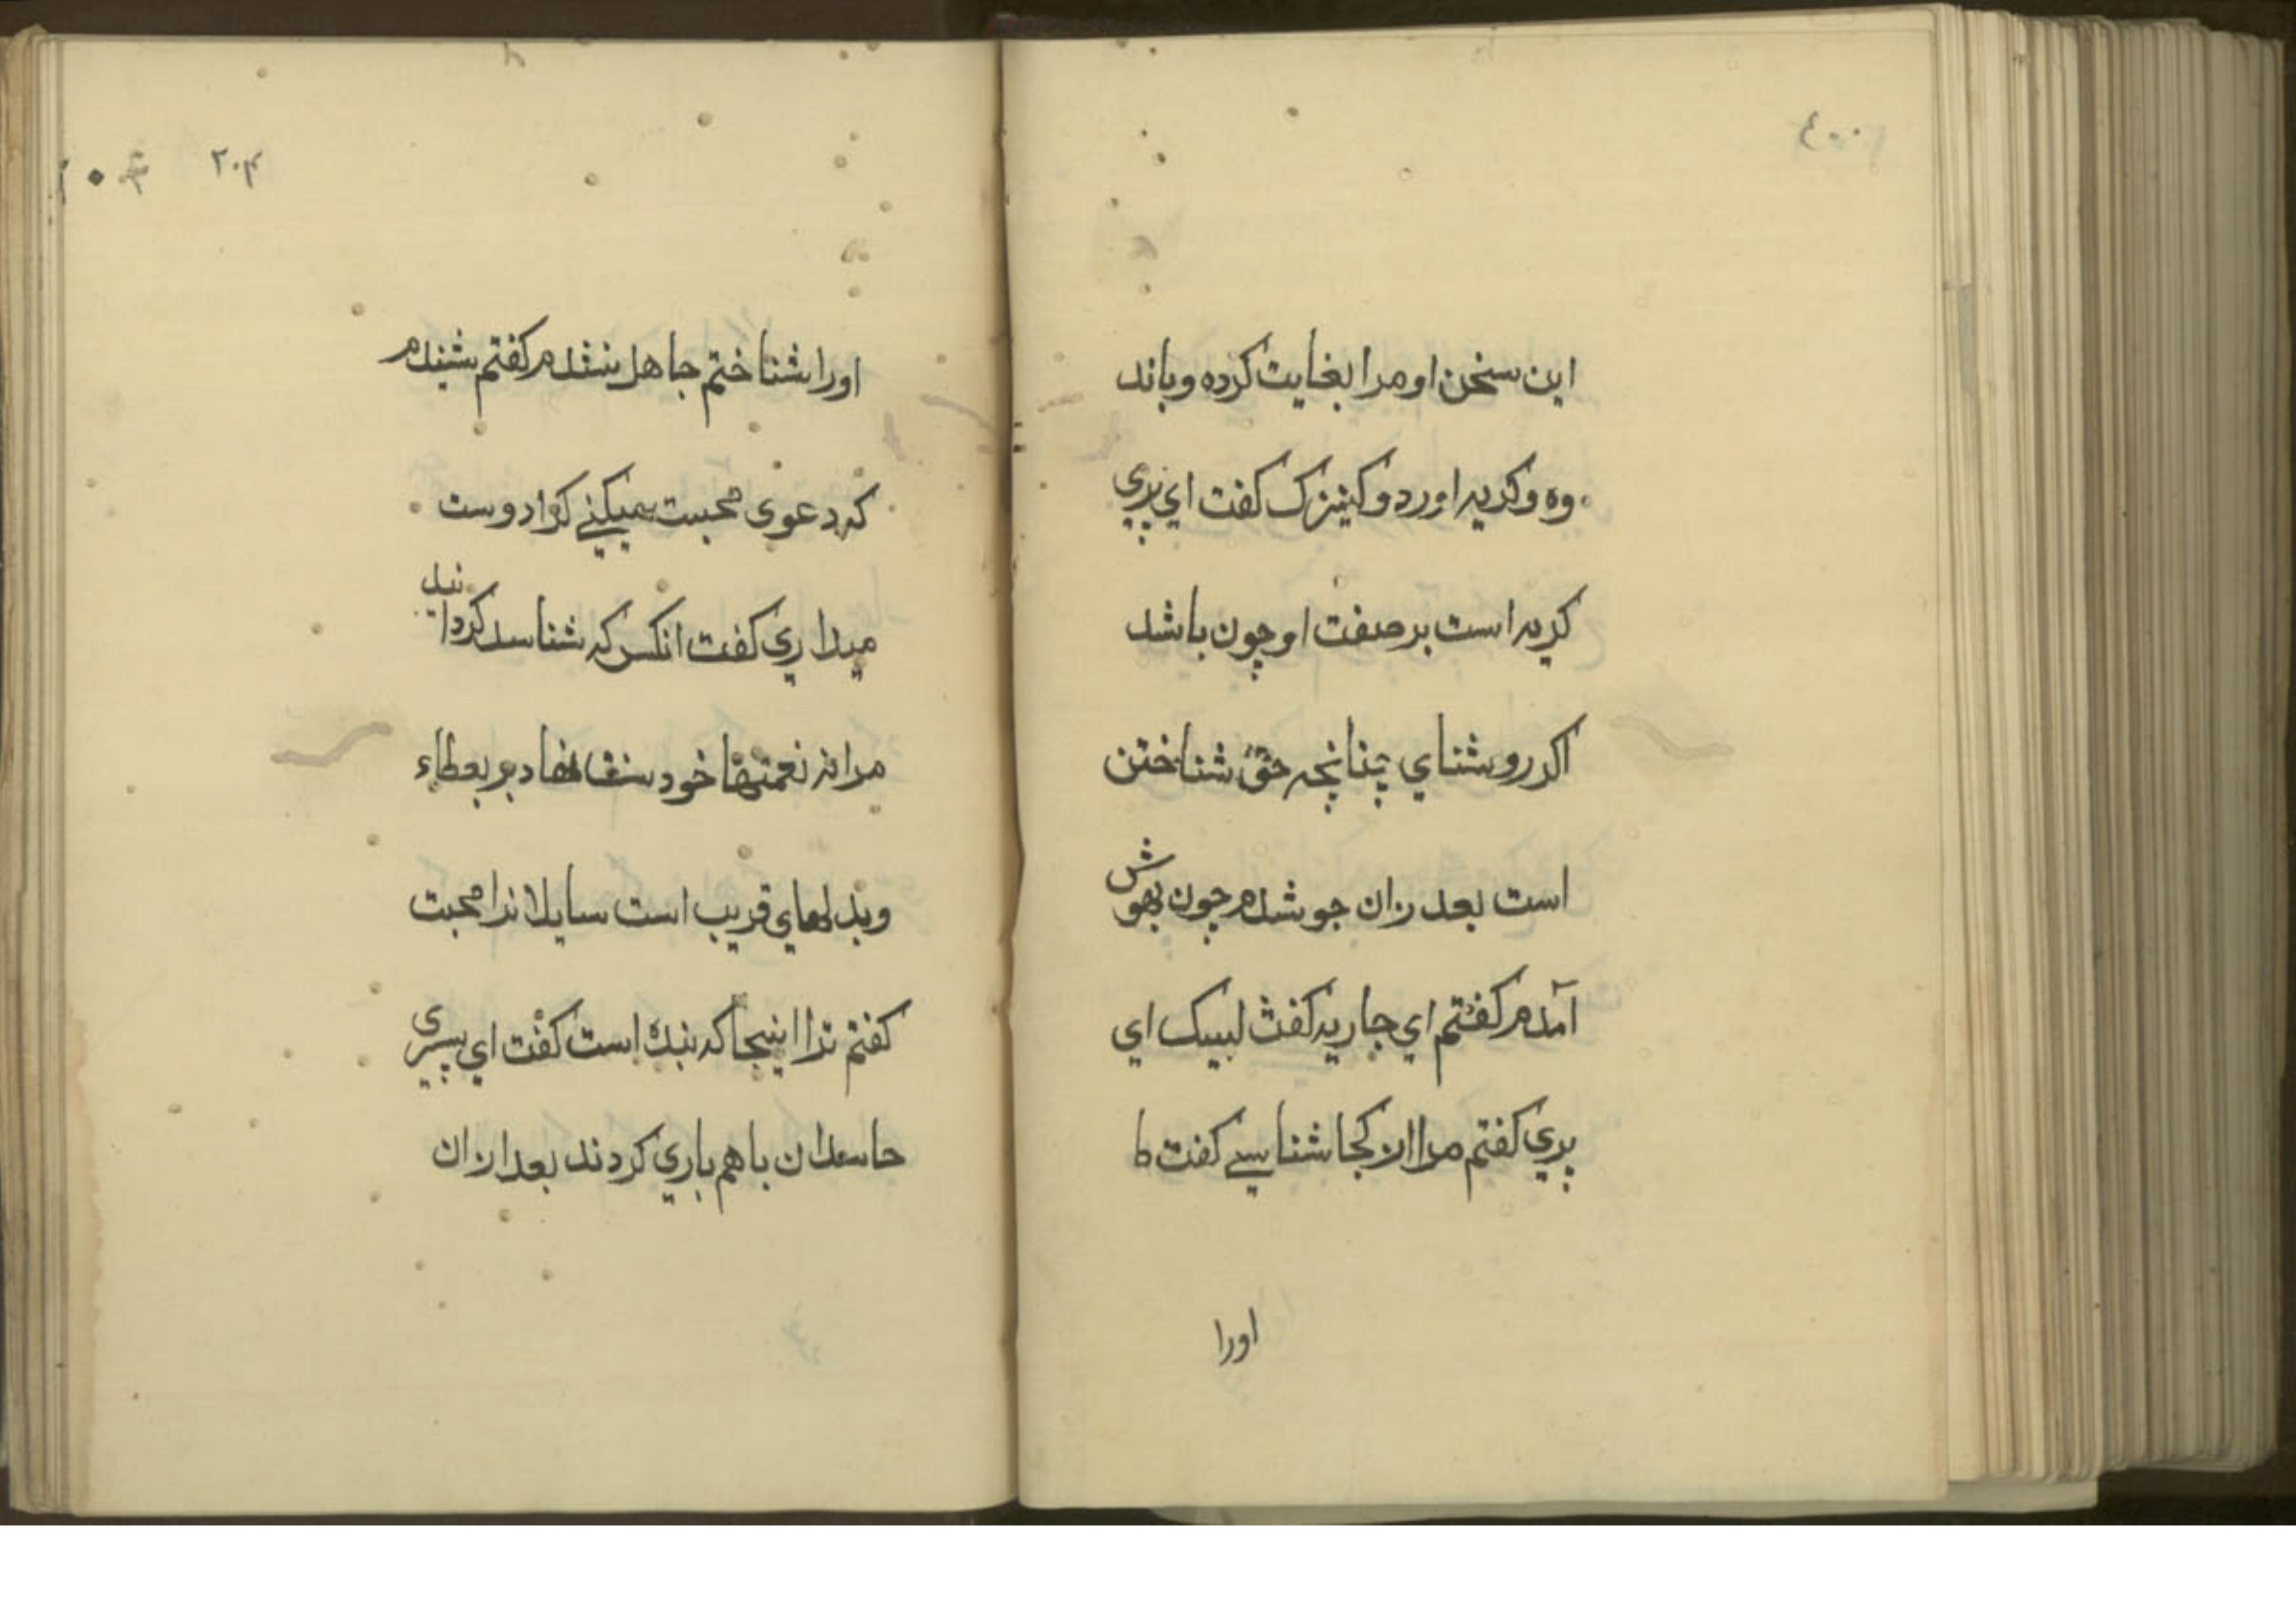 ٤٠٠
این سخن او مرا بغایت کرده و باند
وه و کریه اورد و کنیزک کفت ای پیری
کریه است بر صفت او چون باشد
اکر روشنای چنانچه حق شناختن
است بعد زان جو شدم چون بهوش
آمدم کفتم ای جاریه کفت لبیک ای
پیری کفتم مرا از کجا شناسے کفت تا
اورا
٢٠٤
اورا شناختم جاهل نشدم کفتم شنیدم
که دعوی محبت میکنے کرا دوست
میداری کفت انکس که شناسد کردانید
مرا نعمتها خود بر بعطاء
و بدلهای قریب است سایلانرا محبت
کفتم ترا اینجا که است کفت ای پیری
حاسدان باهم یاری کردند بعد ازان